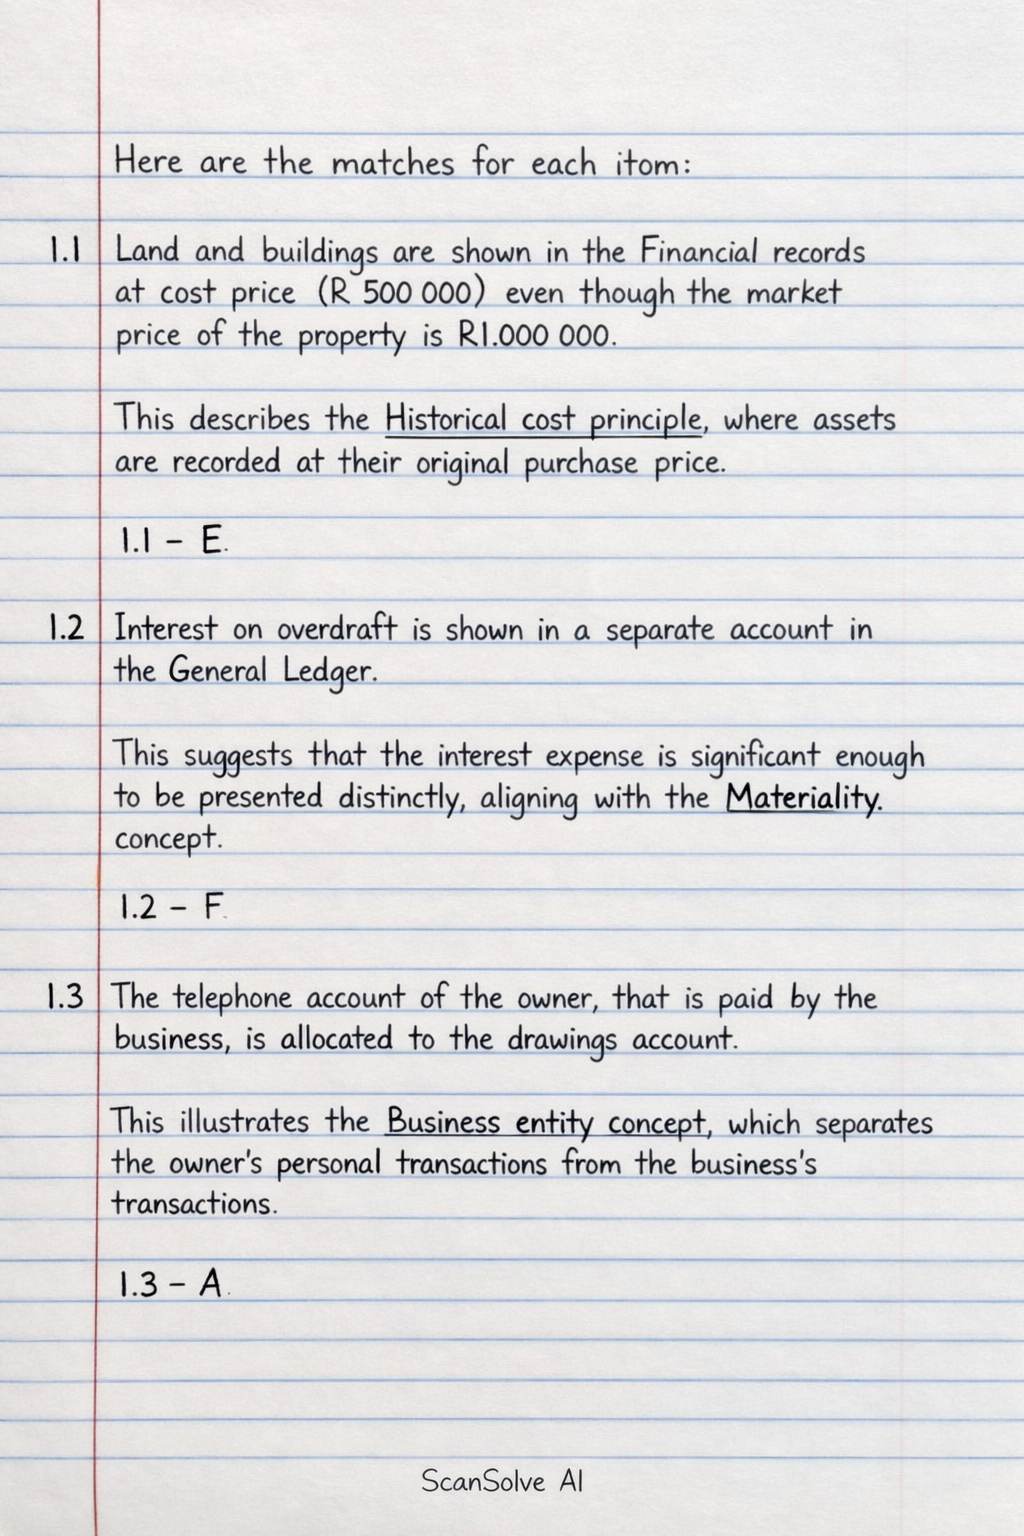 Here are the matches for each itom:
1.1 Land and buildings are shown in the Financial records
at cost price (R 500 000) even though the market
price of the property is R1.000 000.
This describes the Historical cost principle, where assets
are recorded at their original purchase price.
1.1 – E.
1.2 Interest on overdraft is shown in a separate account in
the General Ledger.
This suggests that the interest expense is significant enough
to be presented distinctly, aligning with the Materiality.
concept.
1.2 – F.
1.3 The telephone account of the owner, that is paid by the
business, is allocated to the drawings account.
This illustrates the Business entity concept, which separates
the owner's personal transactions from the business's
transactions.
1.3 – A.
ScanSolve AI